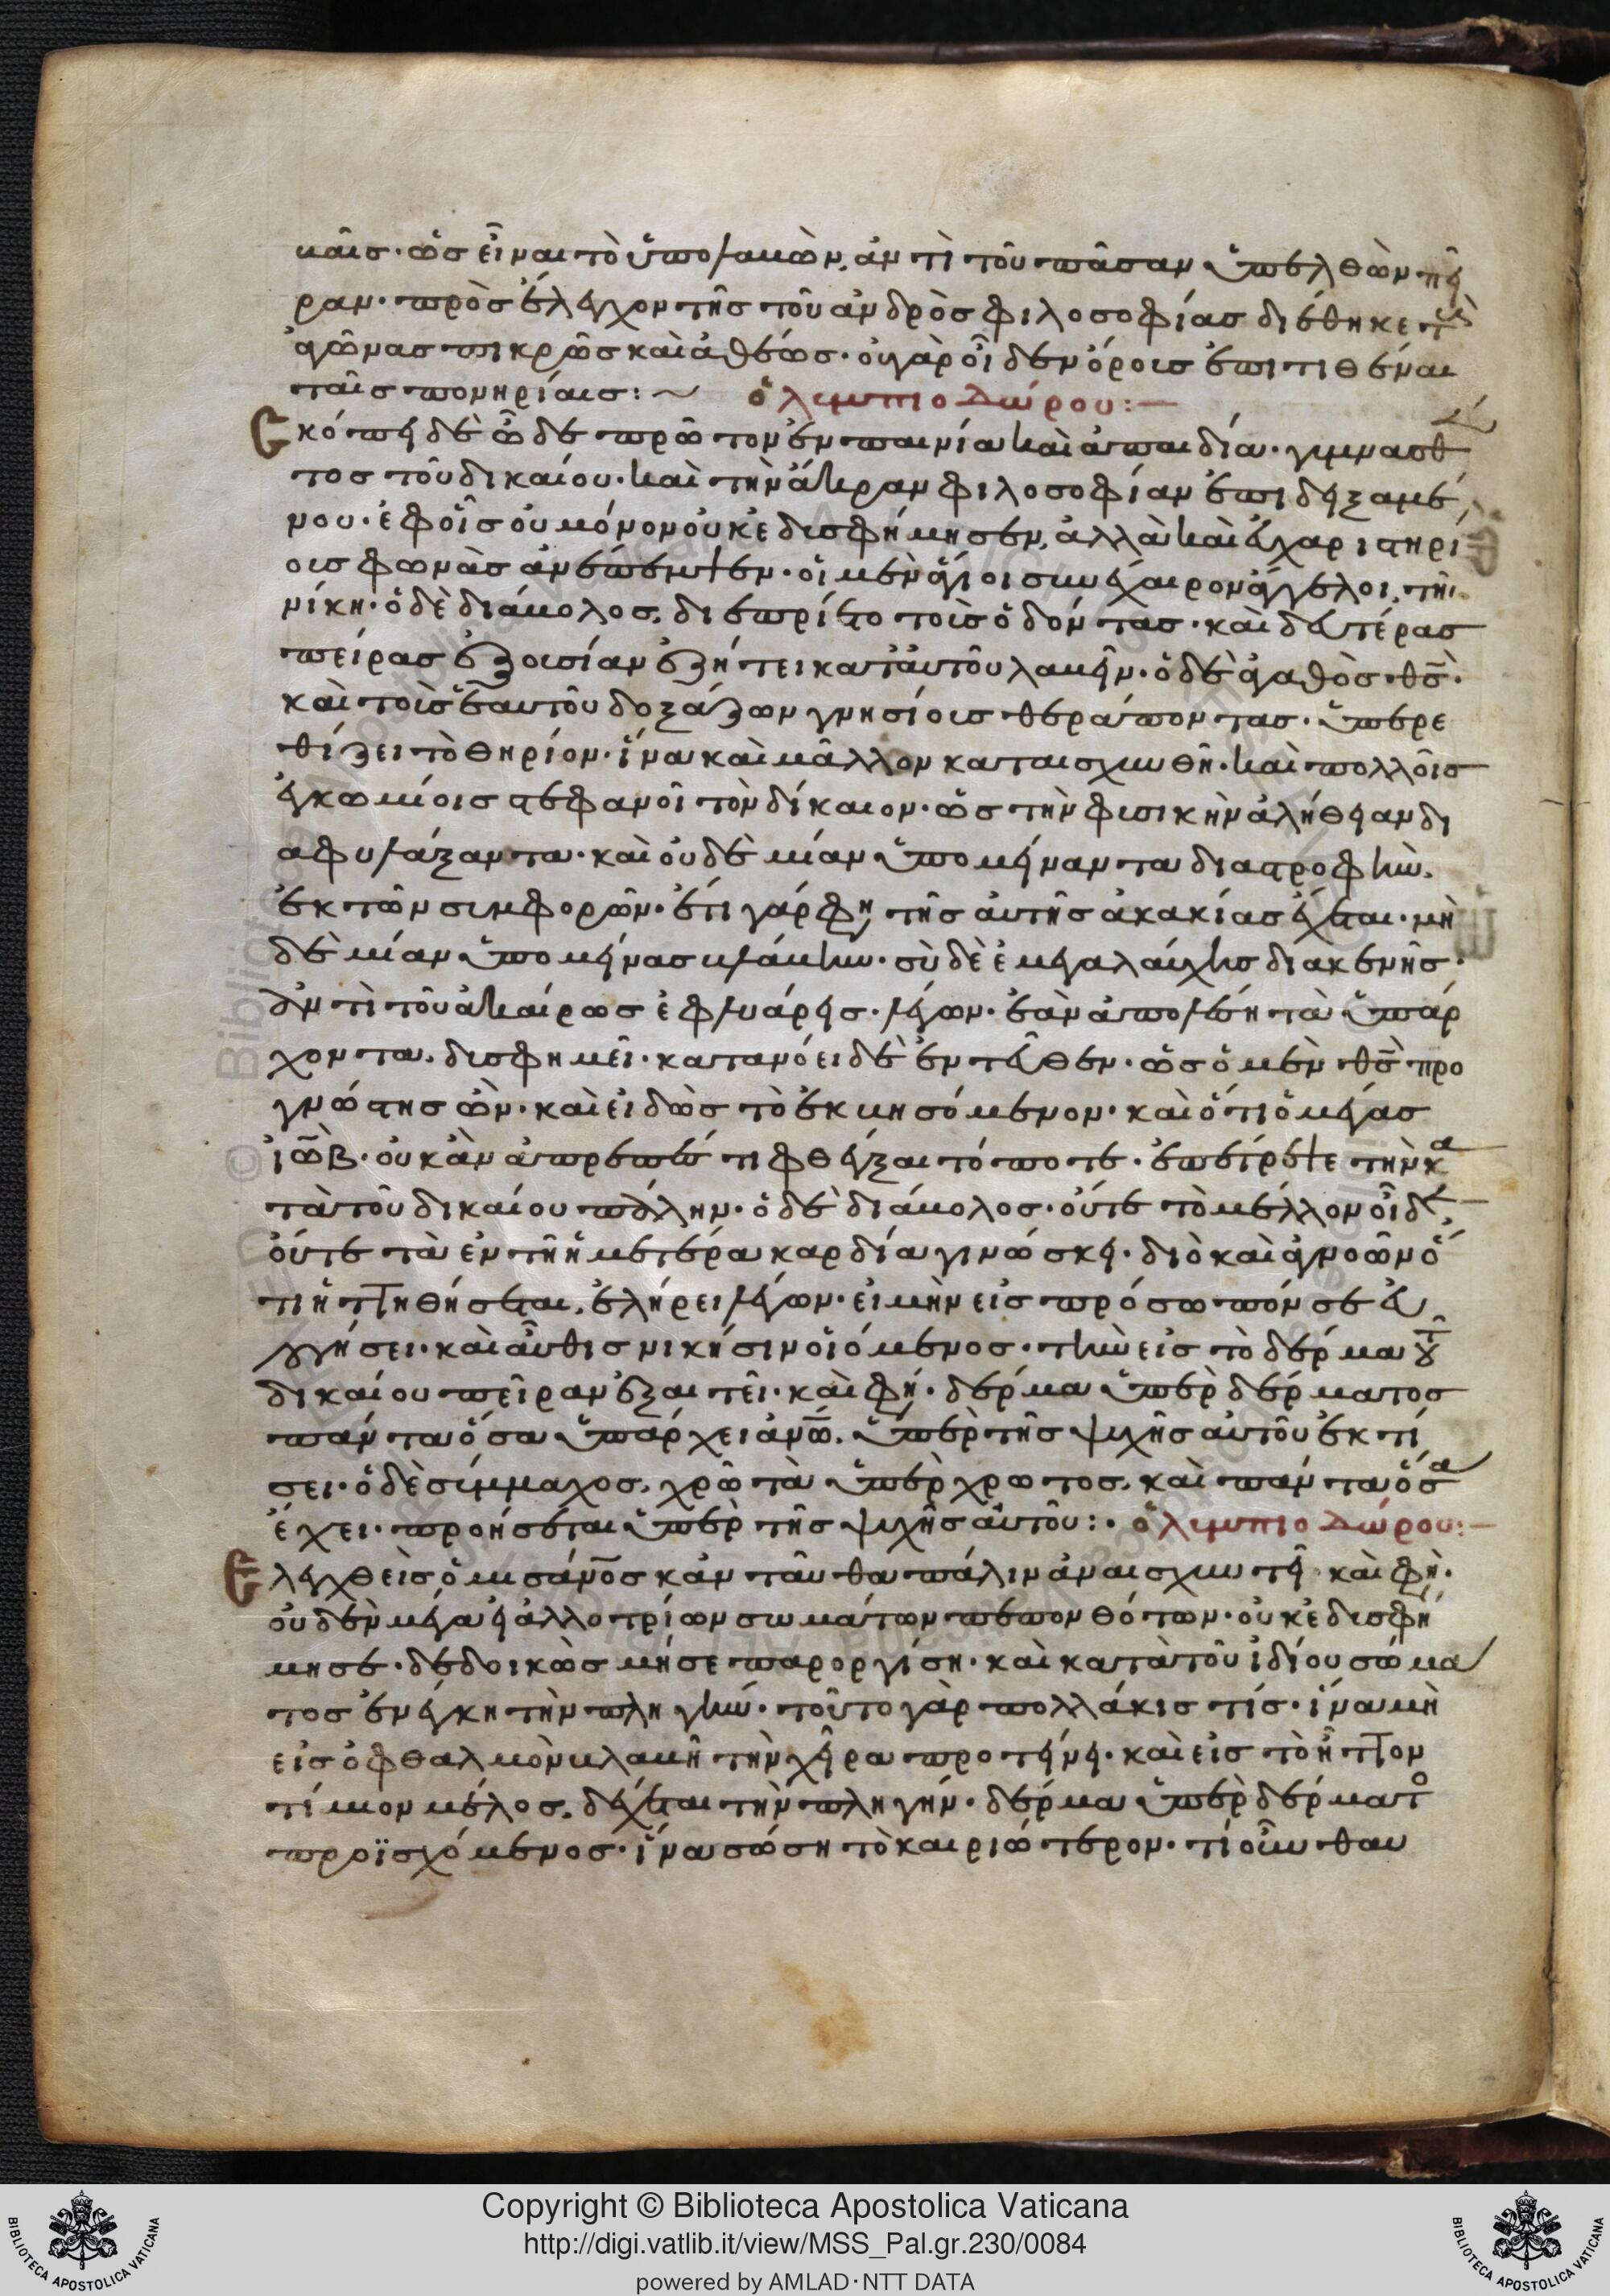 κᾶις· ὡς εἶναι τὸ ὑπολακὼν, ἀντὶ τοῦ πᾶσαν ὑπελθὼν πεῖ
ραν· πρὸς ἔλεγχον τῆς τοῦ ἀνδρὸς φιλοσοφίας διέθηκε τοὺς
ἀγῶνας πικρῶς καὶ ἀθέως· οὐ γὰρ οἶδεν ὅροις ἐπιτιθέναι
ταῖς πονηρίαις:~ ὀλυμπιοδώρου:—
Σκόπει δὲ ὧδε πρῶτον ἐν πανία καὶ ἀπαιδία· γυμνασθέν
τος τοῦ δικαίου· καὶ τὴν ἄκραν φιλοσοφίαν ἐπιδειξαμέ
νου· ἐφ οἷς οὐ μόνον οὐκ ἐδυσφήμησεν, ἀλλὰ καὶ εὐχαριστηρί
οις φωνὰς ἀνέπεμψεν· οἱ μὲν ἅγιοι συνέχαιρον ἄγγελοι, τῆι
νίκη· ὁ δὲ διάβολος, διεπρίετο τοὺς ὀδόντας· καὶ δευτέρας
πείρας ἐξουσίαν ἐζήτει κατ' αὐτοῦ λαβεῖν· ὁ δὲ ἀγαθὸς θς·
καὶ τοὺς ἑαυτοῦ δοξάζων γνησίους θεράποντας· ὑπερε
θίζει τὸ θηρίον· ἵνα καὶ μᾶλλον καταισχυνθῆ· καὶ πολλοῖς
ἐγκωμίοις στεφανοῖ τὸν δίκαιον· ὡς τὴν φυσικὴν ἀλήθειαν δι
αφυλάξαντα· καὶ οὐδὲ μίαν ὑπομείναντα διαστροφὴν,
ἐκ τῶν συμφορῶν· ἔτι γάρ φη, τῆς αὐτῆς ἀκακίας ἔχεται· μη
δὲ μίαν ὑπομείνας βλάβην· σὺ δὲ ἐμεγαλαύχεις διακενῆς·
ἀντὶ τοῦ ἀκαίρως ἐφλυάρεις· λέγων· ἐὰν ἀπολέση τὰ ὑπάρ
χοντα, δυσφημεῖ· κατανόει δὲ ἐντεῦθεν· ὡς ὁ μὲν θς προ
γνώστης ὢν· καὶ εἰδὼς τὸ ἐκβησόμενον· καὶ ὅτι ὁ μέγας
ἰὼβ· οὐκ ἂν ἀπρεπές τι φθέγξαιτό ποτε· ἐπέτρεπε τὴν κα
τὰ τοῦ δικαίου πάλην· ὁ δὲ διάβολος· οὔτε τὸ μέλλον οἶδεν
οὔτε τὰ ἐν τῆ ἡμετέρα καρδία γινώσκει· διὸ καὶ ἀγνοῶν ὅ
τι ἡττηθήσεται, ἐλήρει λέγων· εἰ μὴν εἰς πρόσωπόν σε εὐ
λογήσει· καὶ αὖθις νικήσιν οἰόμενος· τὴν εἰς τὸ δέρμα τοῦ
δικαίου πεῖραν ἐξαιτεῖ· καὶ φη· δέρμα ὑπὲρ δέρματος
πάντα ὅσα ὑπάρχει ἀνῶ, ὑπὲρ τῆς ψυχῆς αὐτοῦ ἐκτί
σει· ὁ δὲ σύμμαχος, χρῶτα ὑπὲρ χρωτος, καὶ πάντα ὅσα
ἔχει· προήσεται ὑπὲρ τῆς ψυχῆς αὐτοῦ:· ὀλυμπιοδώρου:—
Ἐλεγχθεὶς ὁ μισάνος κἀνταῦθα πάλιν ἀναισχυντεῖ· καὶ φη·
οὐδὲν μέγα εἰ ἀλλοτρίων σωμάτων πεπονθότων· οὐκ ἐδυσφή
μησε· δεδοικὼς μή σε παροργίση· καὶ κατὰ τοῦ ἰδίου σώμα
τος ἐνέγκη τὴν πληγὴν· τοῦτο γὰρ πολλάκις τίς· ἵνα μὴ
εἰς ὀφθαλμὸν βλαβῆ τὴν χεῖρα προτείνει· καὶ εἰς τὸ ἧττον
τίμιον μέλος, δέχεται τὴν πληγήν· δέρμα ὑπὲρ δέρματο
προϊσχόμενος· ἵνα σώση τὸ καιριώτερον· τί οὖν θαυ
Copyright © Biblioteca Apostolica Vaticana
http://digi.vatlib.it/view/MSS_Pal.gr.230/0084
powered by AMLAD·NTT DATA
BIBLIOTECA APOSTOLICA VATICANA
BIBLIOTECA APOSTOLICA VATICANA